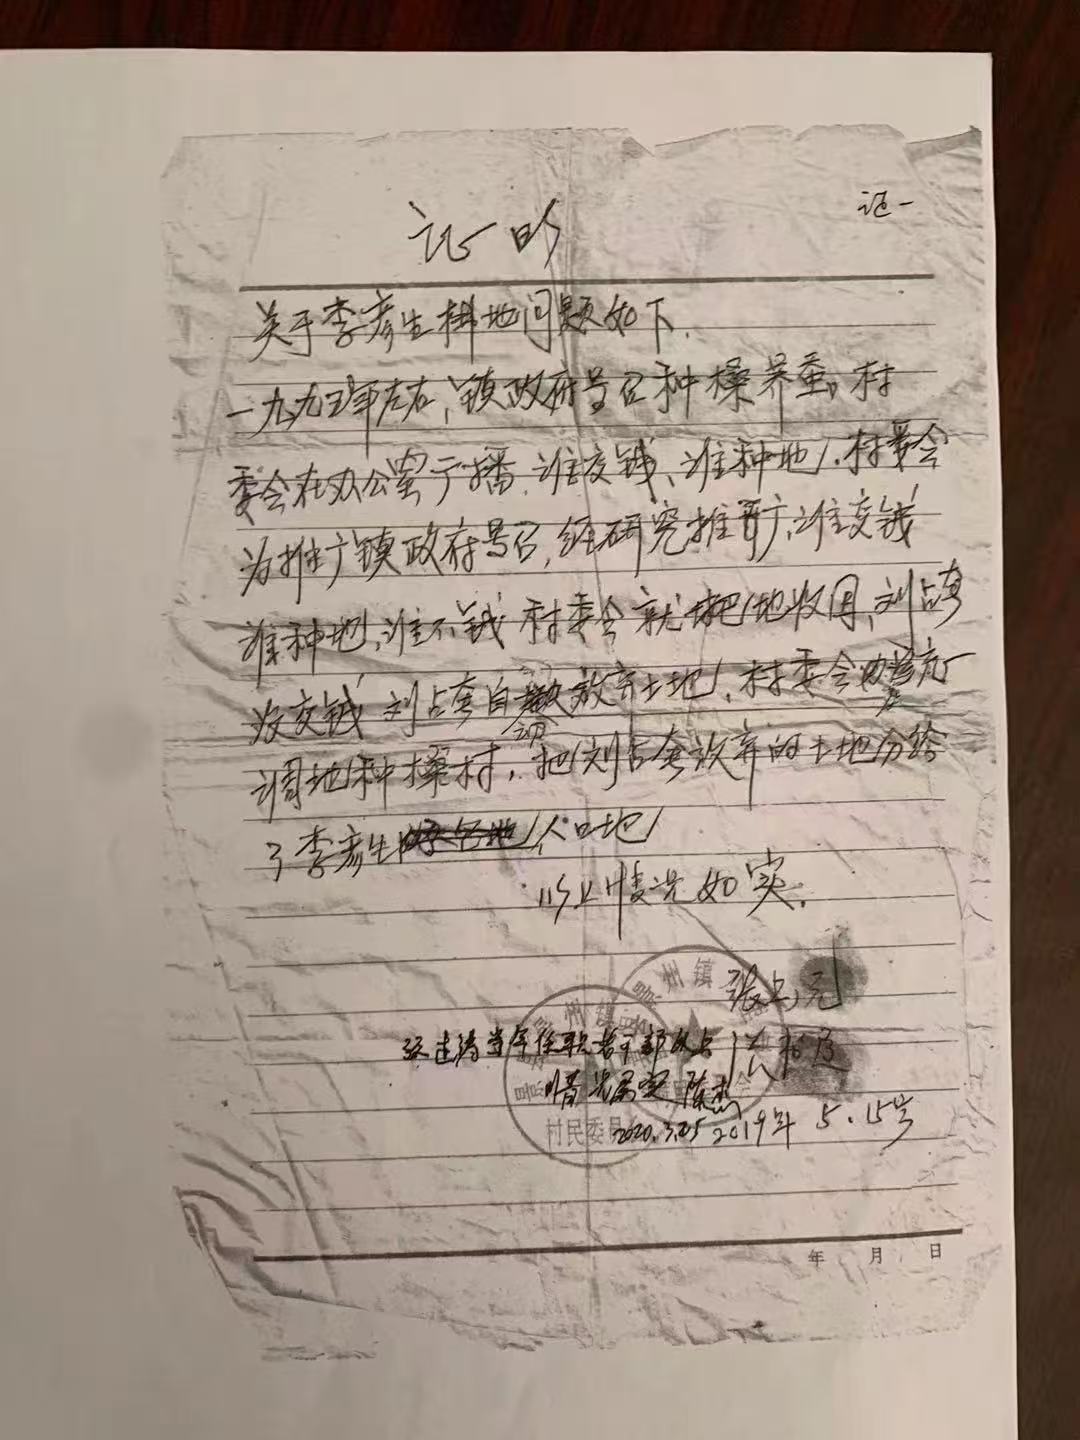 证一
证明
关于李彦生耕地问题如下.
一九九五年左右,镇政府号召种桑养蚕,村
委会在办公室广播.谁交钱、谁种地,村委会
为推广镇政府号召,经研究推广,谁交钱
谁种地,谁不钱村委会就把地收回,刘占奎
没交钱刘占奎自放弃土地,村委会
调地种桑村,把刘占奎放弃的土地分给
了李彦生人口地
以上情况如实.
张占元
经过当年任职老干部以上
情况属实 陈
2020.3.25 2019年5.15号
州镇
州镇
村民委员
会
年 月 日